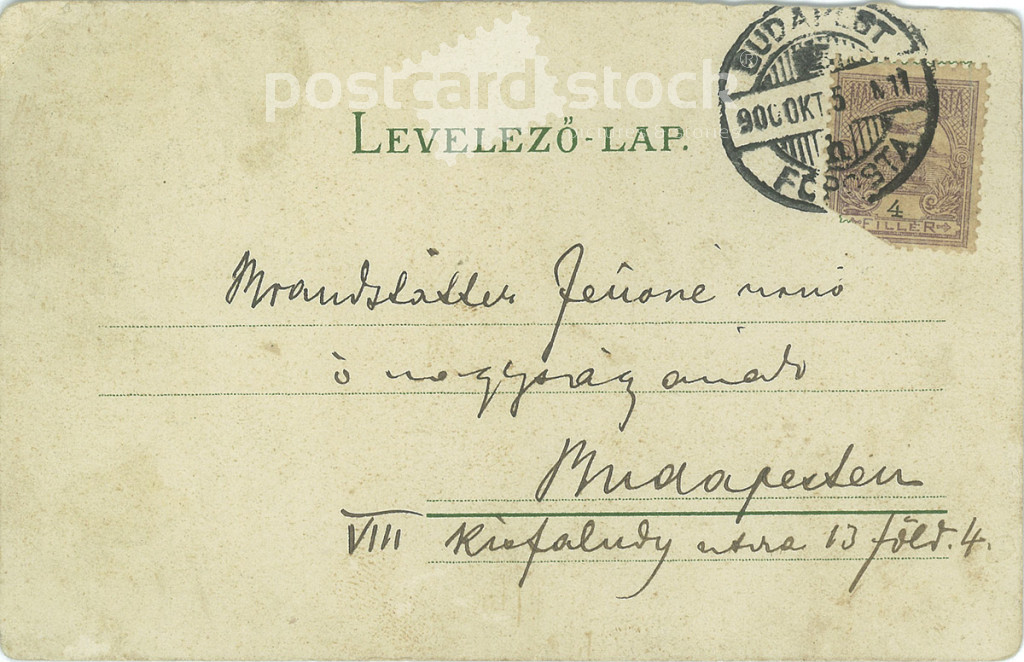 BUDAPEST
900 OKT. 5
FŐPOSTA
4
FILLÉR
postcard stock
LEVELEZŐ-LAP.
Brandstätter Jenőné
ő nagysága
Budapesten
VIII Kisfaludy utca 13 föld. 4.